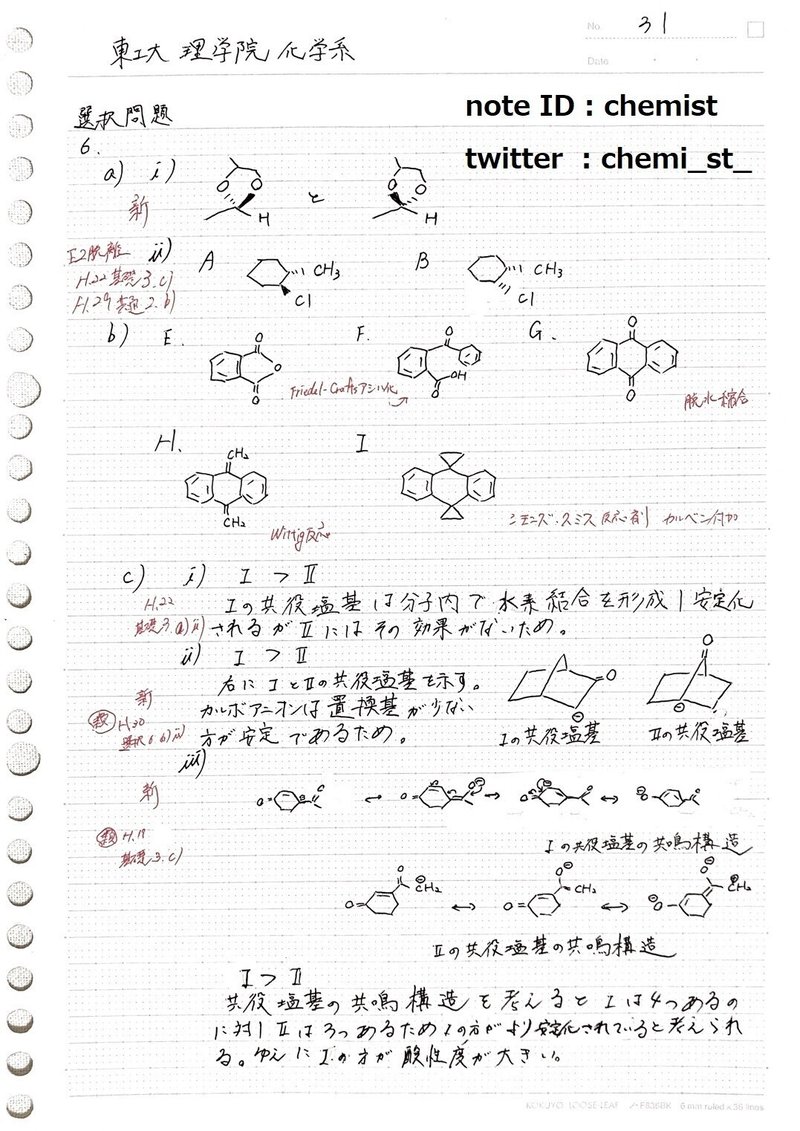 No. 31
Date
東工大 理学院 化学系
note ID : chemist
twitter : chemi_st_
選択問題
6.
a) i)
と
新
O O H
O O H
E2脱離 ii) A CH3 Cl B CH3 Cl
H.22 基礎3.c)
H.29 共通2.b)
b) E. F. G.
O O O
O OH O
O O
Friedel-Craftsアシル化
脱水縮合
H. I
CH2
CH2
Wittig反応
シモンズ・スミス反応剤 カルベン付加
c) i) I > II
H.22
Iの共役塩基は分子内で水素結合を形成し安定化
されるがIIにはその効果がないため。
ii) I > II
右にIとIIの共役塩基を示す。
新
カルボアニオンは置換基が少ない
H.30
方が安定であるため。
Iの共役塩基 IIの共役塩基
iii)
新
H.19
基礎3.c)
Iの共役塩基の共鳴構造
CH2 CH2 CH2
IIの共役塩基の共鳴構造
I > II
共役塩基の共鳴構造を考えるとIは4つあるの
に対しIIは3つあるためIの方がより安定化されていると考えられ
る。ゆえにIの方が酸性度が大きい。
KOKUYO LOOSE-LEAF 6 mm ruled x 36 lines